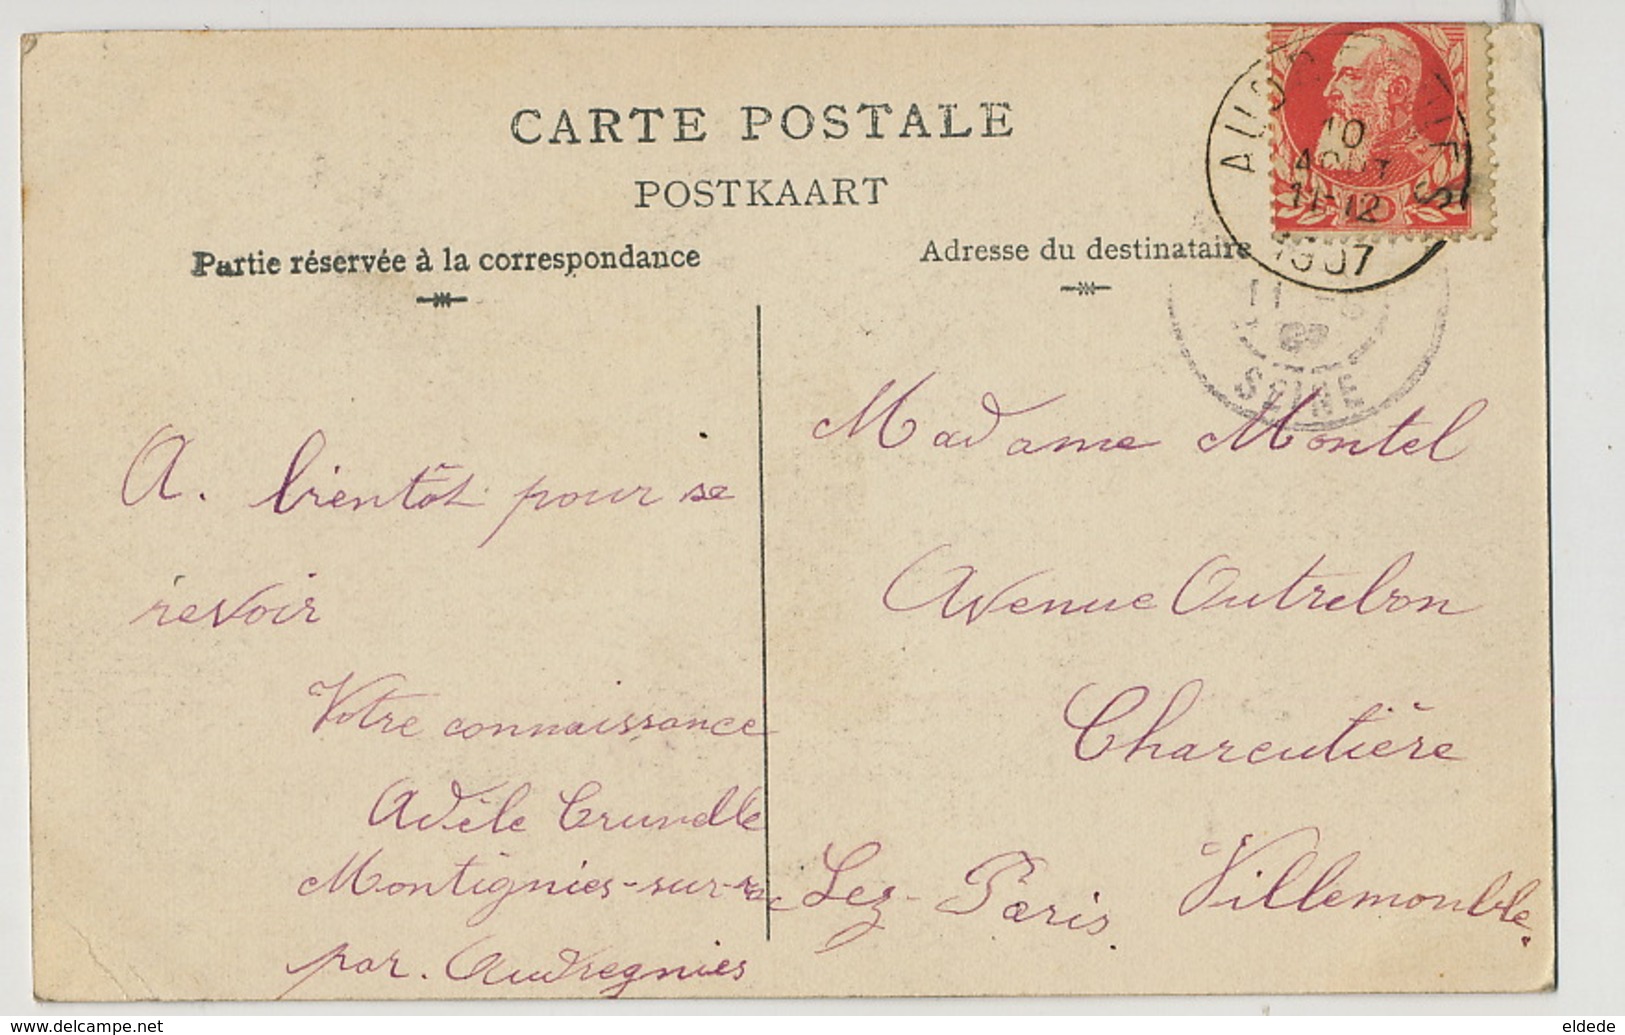 CARTE POSTALE
POSTKAART
Partie réservée à la correspondance
Adresse du destinataire
10
AOUT
11-12
1907
SEINE
A. bientôt pour se
revoir
Votre connaissance
Adèle
Montignies-sur-roc
par. Audregnies
Madame Montel
Avenue Outrebon
Charcutière
Lez-Paris. Villemomble.
eldede
www.delcampe.net